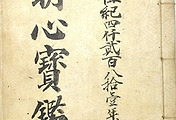 檀紀四仟貳百八拾壹年
明心寶鑑